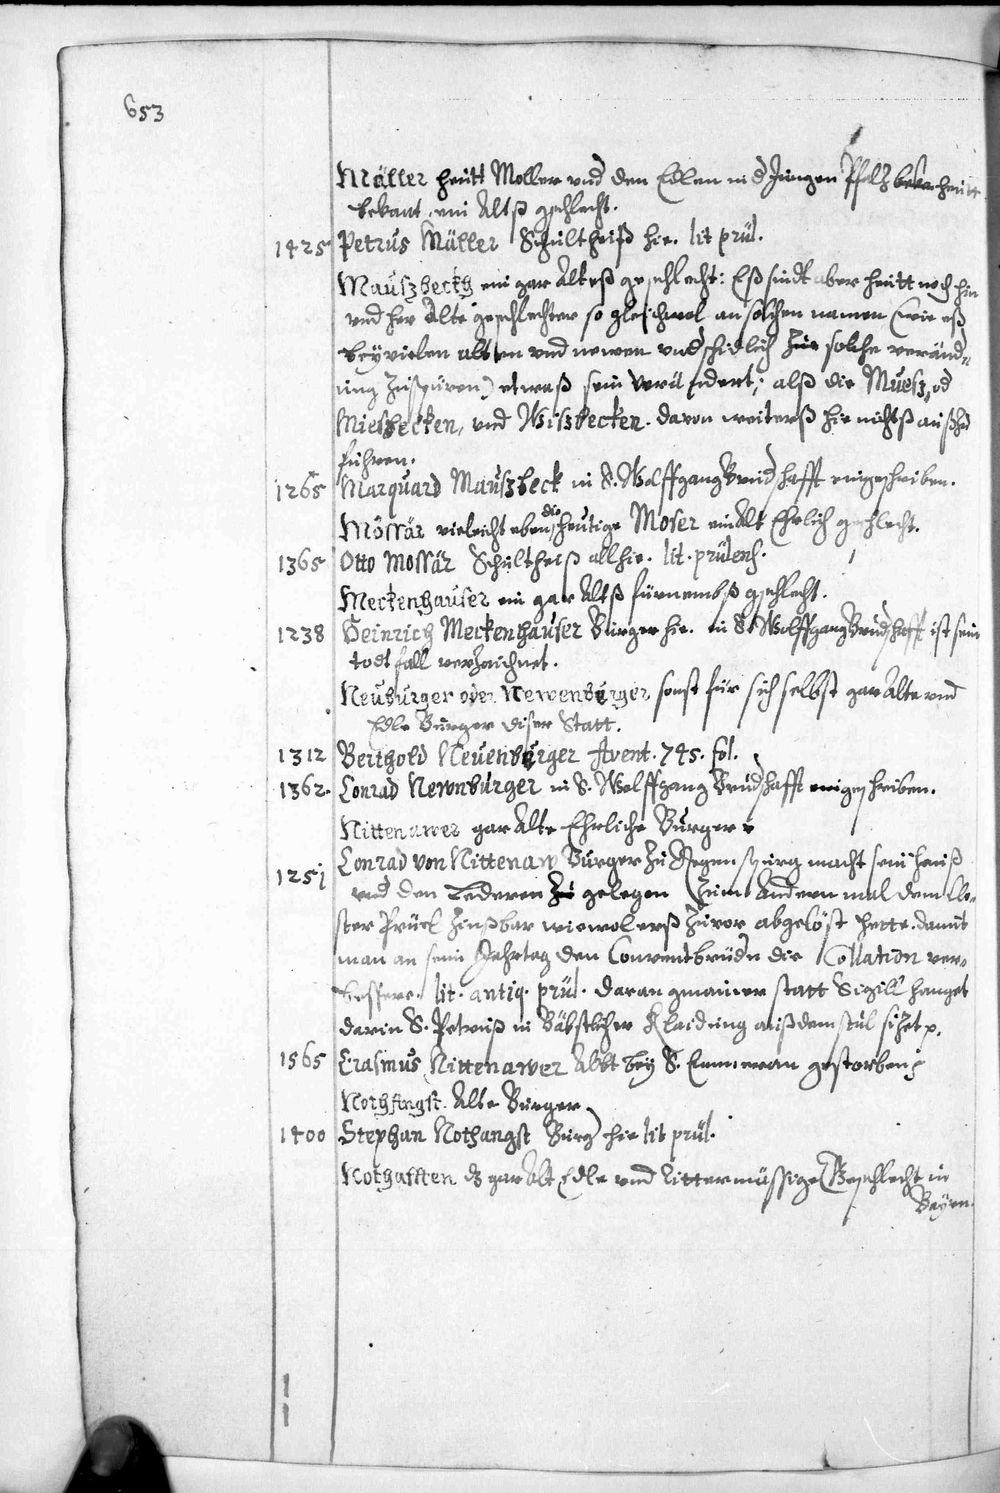 653
Mäller heütt Moller vnd den Edlen in d Jüngen Pfalz heütt
bekant, ein Altß gschlecht.
1425 Petrus Müller Schültheiß hie. lit prül.
Mauszbeckh ein gar Alteß geschlecht: Eß sindt aber heütt noch hin
vnd her Alte geschlechter so gleichwol an solchen namen (wie eß
bey vielen alten vnd newen vndschidlich solche veränd-
ung Zuspüren) etwaß sein verändert; alß die Muesz, od
Miesbecken, vnd Wiszbecken. davon weiterß hie nichtß
führen.
1265 Marquard Mauszbeck in S. Wolffgang Brudschafft eingeschriben.
Mössär vieleicht eben die heutige Moser ein Alt Ehrlich gschlecht.
1365 Otto Mossär Schültheiß allhie. lit. prülens.
Meckenhauser ein gar Altß fürnembß gschlecht.
1238 Heinrich Meckenhauser Bürger hie. in S. Wolffgang Brudschafft ist sein
todtfall verzaichnet.
Neuburger oder Newenburger sonst für sich selbst gar Alte vnd
Edle Burger diser Statt.
1312 Berthold Neuenburger Avent. 745. fol.
1362. Conrad Newnburger in S. Wolffgang Brudschafft eingeschriben.
Nittenawer gar Alte Ehrliche Burger
1251 Conrad von Nittenaw Burger Zu Regenspurg macht sein hauß
vnd den Lederen gelegen Zum Andern mal dem Clo-
ster Prüel Zinßbar wiewol erß Zuvor abgelöst hette. damit
man an sein Jahrtag den Conventbrüdn die Collation ver-
bessere. lit. antiq. prül. daran gmainer statt Sigill hanget
darin S. Petruß in Bäbstlicher Klaidung auß dem stul sizet p.
1565 Erasmus Nittenawer Abbt bey S. Emmeran gestorben
Nothangst. Alte Burger
1400 Stephan Nothangst Burg hie lit prül.
Nothafften ds gar Alt Edle vnd Rittermässige Geschlecht in
Bayrn.